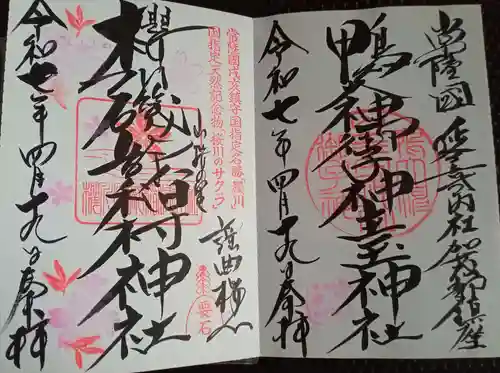 常陸國 延喜式内社 加茂部鎮座
鴨大神御子神主玉神社
令和七年四月十九日奉拝
常陸國戌亥鎮守 国指定名勝「櫻川」
国指定天然記念物「桜川のサクラ」
謡曲櫻川
要石
櫻川磯部稲村神社
令和七年四月十九日奉拝